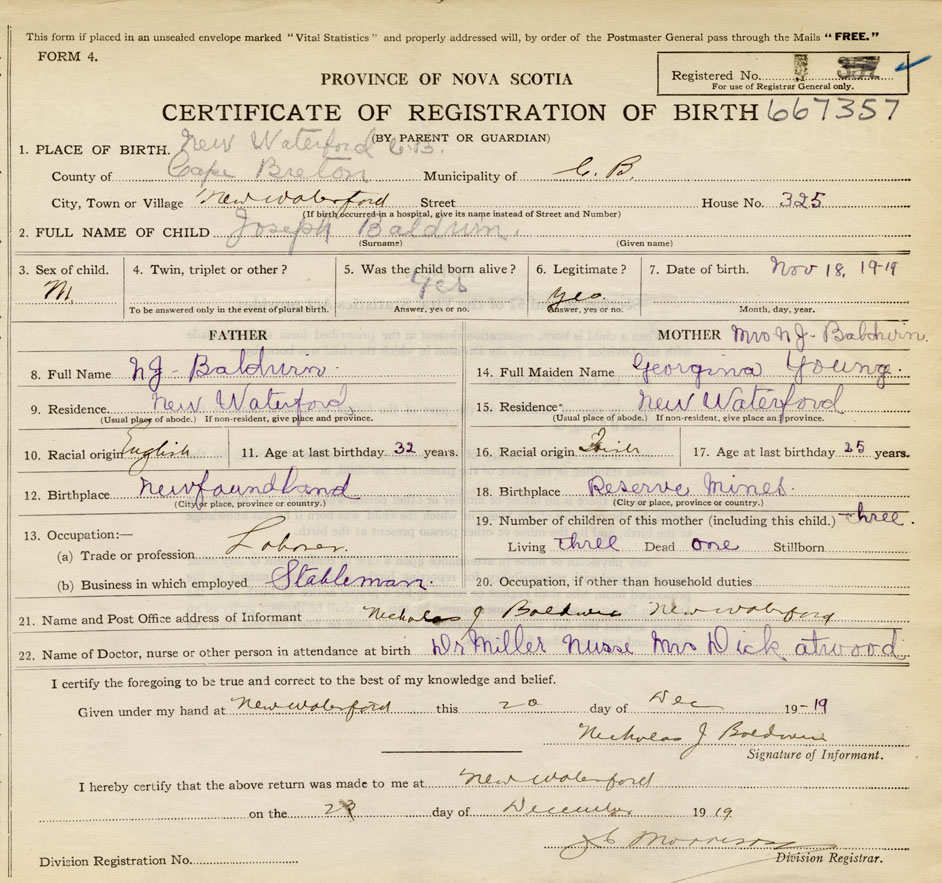 This form if placed in an unsealed envelope marked "Vital Statistics" and properly addressed will, by order of the Postmaster General pass through the Mails "FREE."
FORM 4.
PROVINCE OF NOVA SCOTIA
Registered No.
For use of Registrar General only.
CERTIFICATE OF REGISTRATION OF BIRTH 667357
(BY PARENT OR GUARDIAN)
1. PLACE OF BIRTH. New Waterford C.B.
County of Cape Breton Municipality of C. B.
City, Town or Village New Waterford Street House No. 325
(If birth occurred in a hospital, give its name instead of Street and Number)
2. FULL NAME OF CHILD Joseph Baldwin.
(Surname) (Given name)
3. Sex of child. 4. Twin, triplet or other? 5. Was the child born alive? 6. Legitimate? 7. Date of birth. Nov 18, 19-19
M. Yes yes
To be answered only in the event of plural birth. Answer, yes or no. Answer, yes or no. Month, day, year.
FATHER MOTHER Mrs N J- Baldwin.
8. Full Name N J- Baldwin. 14. Full Maiden Name Georgina Young.
9. Residence. New Waterford, 15. Residence New Waterford
(Usual place of abode.) If non-resident, give place and province. (Usual place of abode.) If non-resident, give place and province.
10. Racial origin English 11. Age at last birthday 32 years. 16. Racial origin Irish 17. Age at last birthday 25 years.
12. Birthplace Newfoundland 18. Birthplace Reserve Mines.
(City or place, province or country.) (City or place, province or country.)
13. Occupation:— 19. Number of children of this mother (including this child.) three.
(a) Trade or profession Laborer. Living three Dead one Stillborn
(b) Business in which employed Stableman. 20. Occupation, if other than household duties
21. Name and Post Office address of Informant Nicholas J Baldwin New Waterford
22. Name of Doctor, nurse or other person in attendance at birth Dr Miller Nusse Mrs Dick atwood
I certify the foregoing to be true and correct to the best of my knowledge and belief.
Given under my hand at New Waterford this 20 day of Dec 19-19
Nicholas J Baldwin
Signature of Informant.
I hereby certify that the above return was made to me at New Waterford
on the day of December 1919
Morrison
Division Registration No. Division Registrar.